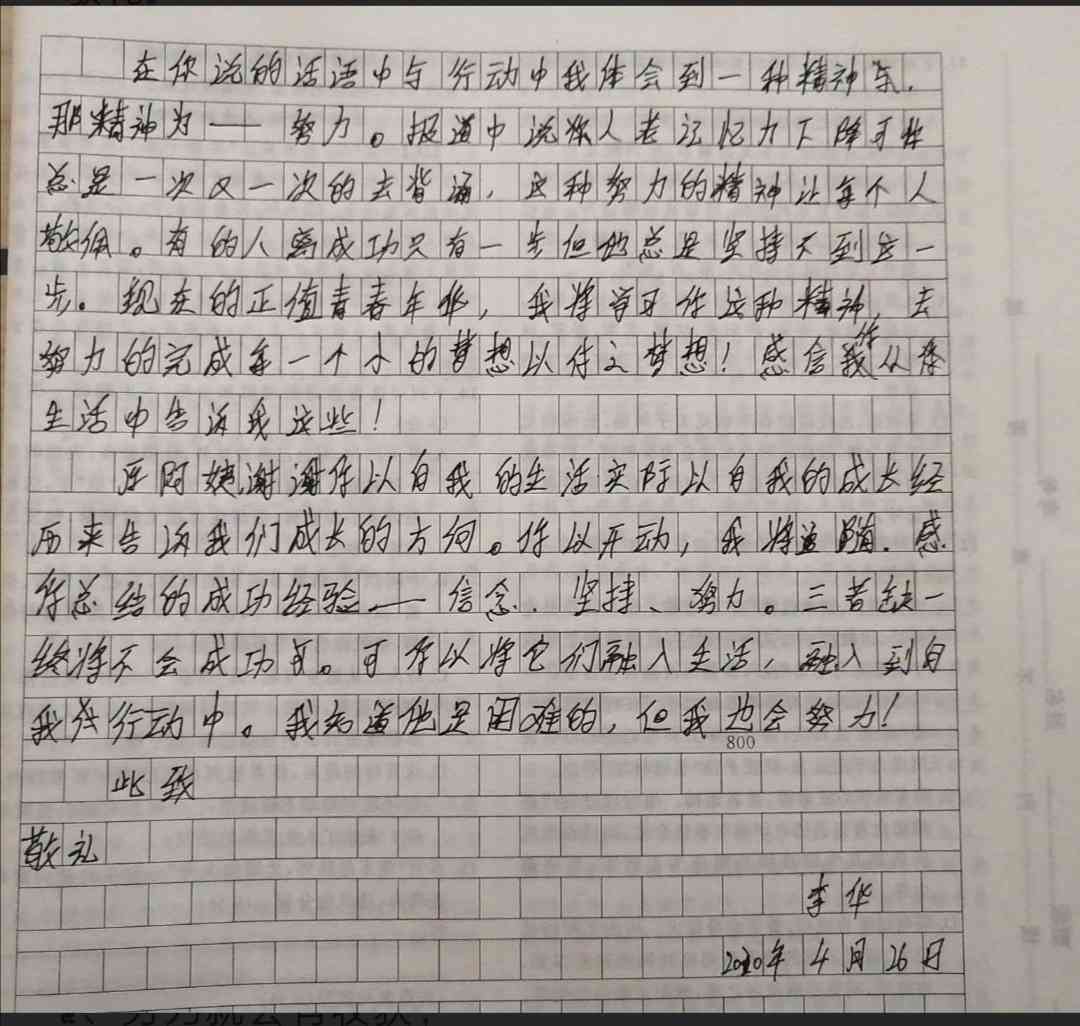 在你说的话语中与行动中我体会到一种精神东,
那精神为——努力。报道中说你人老记忆力下降可你
总是一次又一次的去背诵,这种努力的精神让每个人
敬佩。有的人离成功只有一步但他总是坚持不到这一
步。现在的正值青春年华,我将学习你这种精神,去
努力的完成每一个小的梦想以伟之梦想!感信你从你
生活中告诉我这些!
阿姨谢谢你以自我的生活实际以自我的成长经
历来告诉我们成长的方向。你以开动,我将追随.感
你总结的成功经验——信念、坚持、努力。三者缺一
终将不会成功。可你以将它们融入生活,融入到自
我行动中。我知道他是困难的,但我也会努力!
800
此致
敬礼
李华
2020年4月26日
、努力就会有收获;